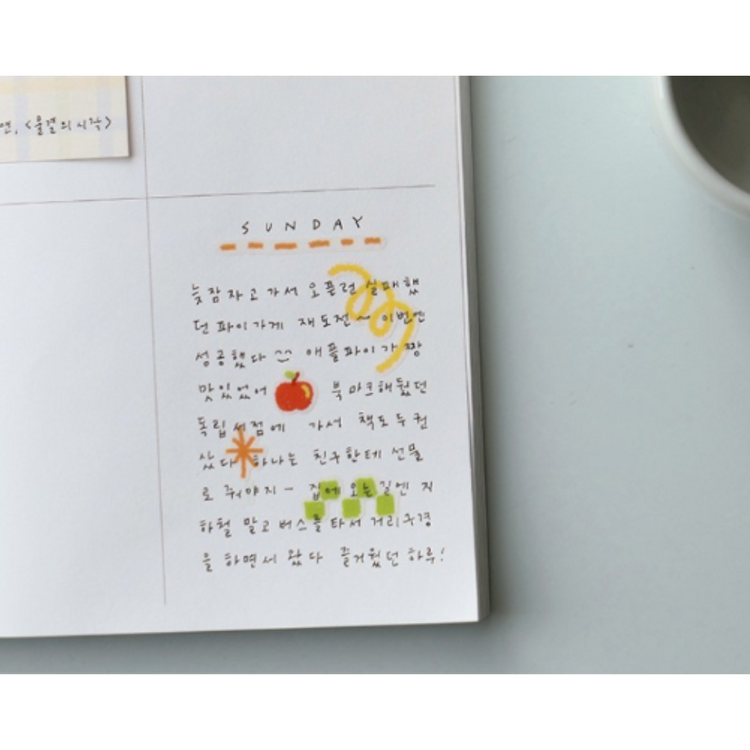 연, <물결의 시작>
SUNDAY
늦잠 자고 가서 오픈런 실패했
던 파이가게 재도전~ 이번엔
성공했다 ^^ 애플파이가 짱
맛있었어 북마크해뒀던
독립서점에 가서 책도 두 권
샀다 하나는 친구한테 선물
로 줘야지- 집에 오는 길엔 지
하철 말고 버스를 타서 거리구경
을 하면서 왔다 즐거웠던 하루!